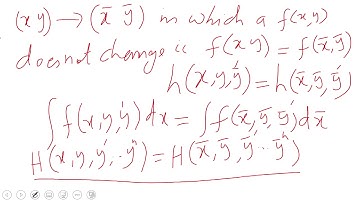 (x y) → (x̄ ȳ) in which a f(x,y)
does not change ii f(x y) = f(x̄, ȳ)
h(x, y, y') = h(x̄, ȳ, ȳ')
∫ f(x, y, y') dx = ∫ f(x̄, ȳ, ȳ') dx̄
H(x, y, y', .. yⁿ) = H(x̄, ȳ, ȳ' ... ȳⁿ)